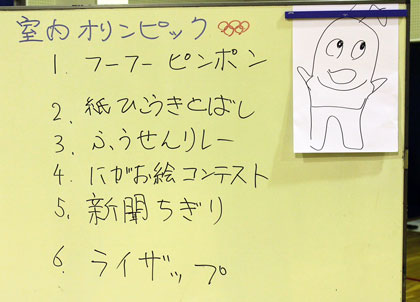 室内オリンピック
1. フーフーピンポン
2. 紙ひこうきとばし
3. ふうせんリレー
4. にがお絵コンテスト
5. 新聞ちぎり
6. ライザップ